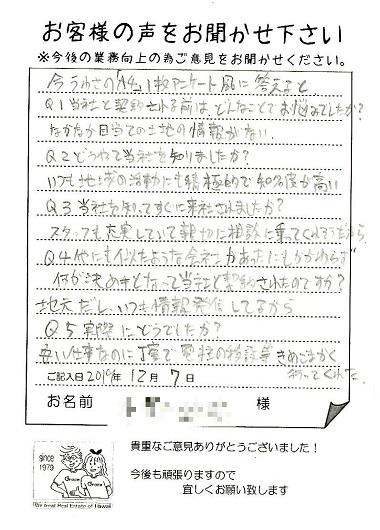 お客様の声をお聞かせ下さい
※今後の業務向上の為ご意見をお聞かせください。
今うわさの「A4」1枚アンケート風に答えると
Q1当社と契約される前は、どんなことでお悩みでしたか?
なかなか目当ての土地の情報がない
Q2どうやって当社を知りましたか?
いつも地域の活動にも積極的で知名度が高い
Q3当社を知ってすぐに来社されましたか?
スタッフも充実していて親切に相談に乗ってくれそうだから
Q4他にも似たような会社があったにもかかわらず
何が決め手となって当社と契約されたのですか?
地元だし、いつも情報発信してるから
Q5実際にどうでしたか?
安い仕事なのに丁寧で電柱の移設等きめこまかく
行ってくれた
ご記入日 2010年 12月 7日
お名前 様
since
1979
Grace Grace
We Great Real Estate of Hawaii
貴重なご意見ありがとうございました!
今後も頑張りますので
宜しくお願い致します